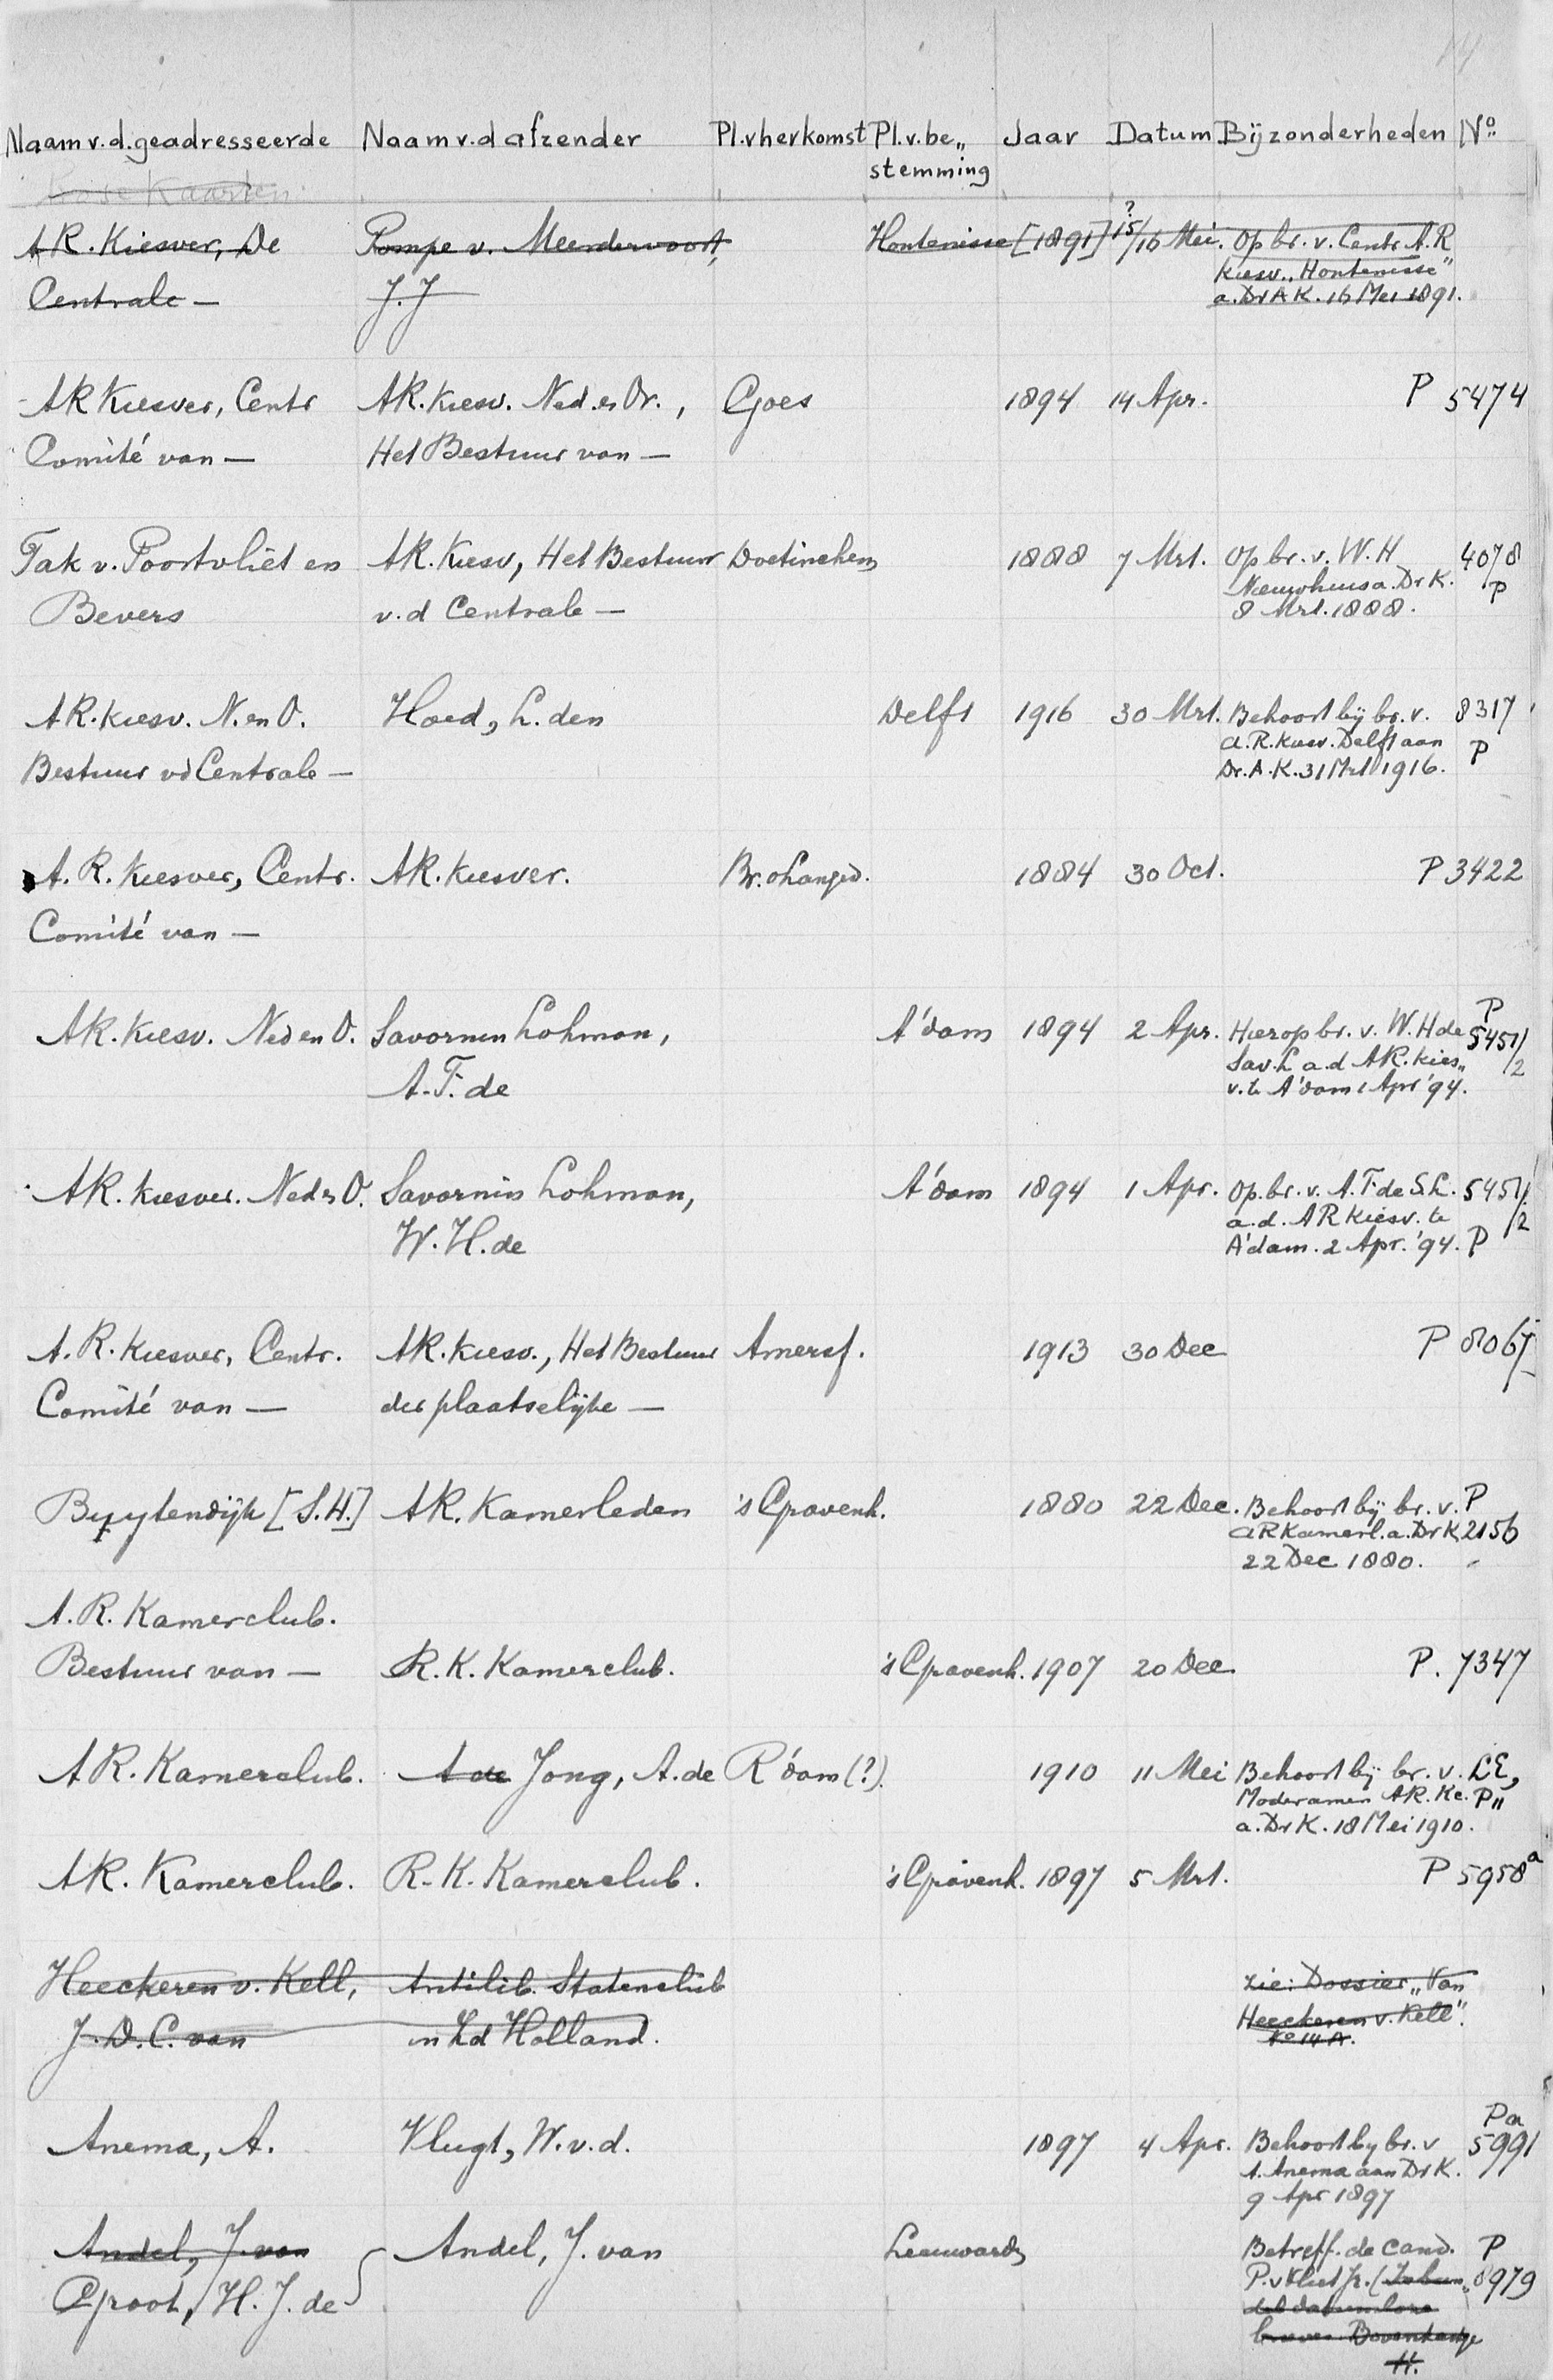 14
Naam v.d. geadresseerde Naam v.d afzender Pl.v herkomst Pl.v.be„ Jaar Datum Bijzonderheden No
stemming
Losse Kaarten
AR. Kiesver, De Pompe v. Meerdervoort, Hontenisse [1891] 15?/16 Mei. Op br. v. Centr. A.R
Centrale — J.J Kiesv. „Hontenisse"
a. Dr A K. 16 Mei 1891.
AR Kiesver, Centr AR. Kiesv. Ned. en Or., Goes 1894 14 Apr. P 5474
Comité van — Het Bestuur van —
Tak v. Poortvliet en AR. Kiesv, Het Bestuur Doetinchem 1888 7 Mrt. Op br. v. W. H 4078
Bevers v.d Centrale — Nieuwhuis a. Dr K. P
8 Mrt. 1888.
AR. Kiesv. N. en O. Hoed, L. den Delft 1916 30 Mrt. Behoort bij br. v. 8317
Bestuur vd Centrale — A.R. Kiesv. Delft aan P
Dr. A. K. 31 Mrt 1916.
A. R. Kiesver, Centr. AR. Kiesver. Br. o Langed. 1884 30 Oct. P 3422
Comité van —
AR. Kiesv. Ned en O. Savornin Lohman, A'dam 1894 2 Apr. Hierop br. v. W. H de P
A. F. de Sav. L a.d AR. Kies„ 5451/2
v. te A'dam 1 Apr '94.
AR. Kiesver. Ned en O. Savornin Lohman, A'dam 1894 1 Apr. Op. br. v. A. F. de S. L. 5451/2
W. H. de a.d. AR Kiesv. te
A'dam. 2 Apr. '94. P
A. R. Kiesver, Centr. AR. Kiesv., Het Bestuur Amersf. 1913 30 Dec P 8065
Comité van — der plaatselijke —
Buytendijk [S.H.] AR. Kamerleden 's Gravenh. 1880 22 Dec. Behoort bij br. v. P
AR Kamerl. a. Dr K 2156
22 Dec 1880.
A. R. Kamerclub.
Bestuur van — R. K. Kamerclub. 's Gravenh. 1907 20 Dec. P. 7347
AR. Kamerclub. A de Jong, A. de R'dam (?). 1910 11 Mei Behoort bij br. v. LE,
Moderamen AR. Kc. P„
a. Dr K. 18 Mei 1910.
AR. Kamerclub. R-K. Kamerclub. 's Gravenh. 1897 5 Mrt. P 5958a
Heeckeren v. Kell, Antilib. Statenclub zie: Dossier „Van
J. D. C. van in Zd Holland. Heeckeren v. Kell".
Ke 14 A.
Anema, A. Vlugt, W. v. d. 1897 4 Apr. Behoort by br. v Pa
A. Anema aan Dr K. 5991
9 Apr 1897
Andel, J. van Andel, J. van Leeuward Betreff. de Cand. P
Groot, H. J. de P. v Vliet Jr. 8979
H.